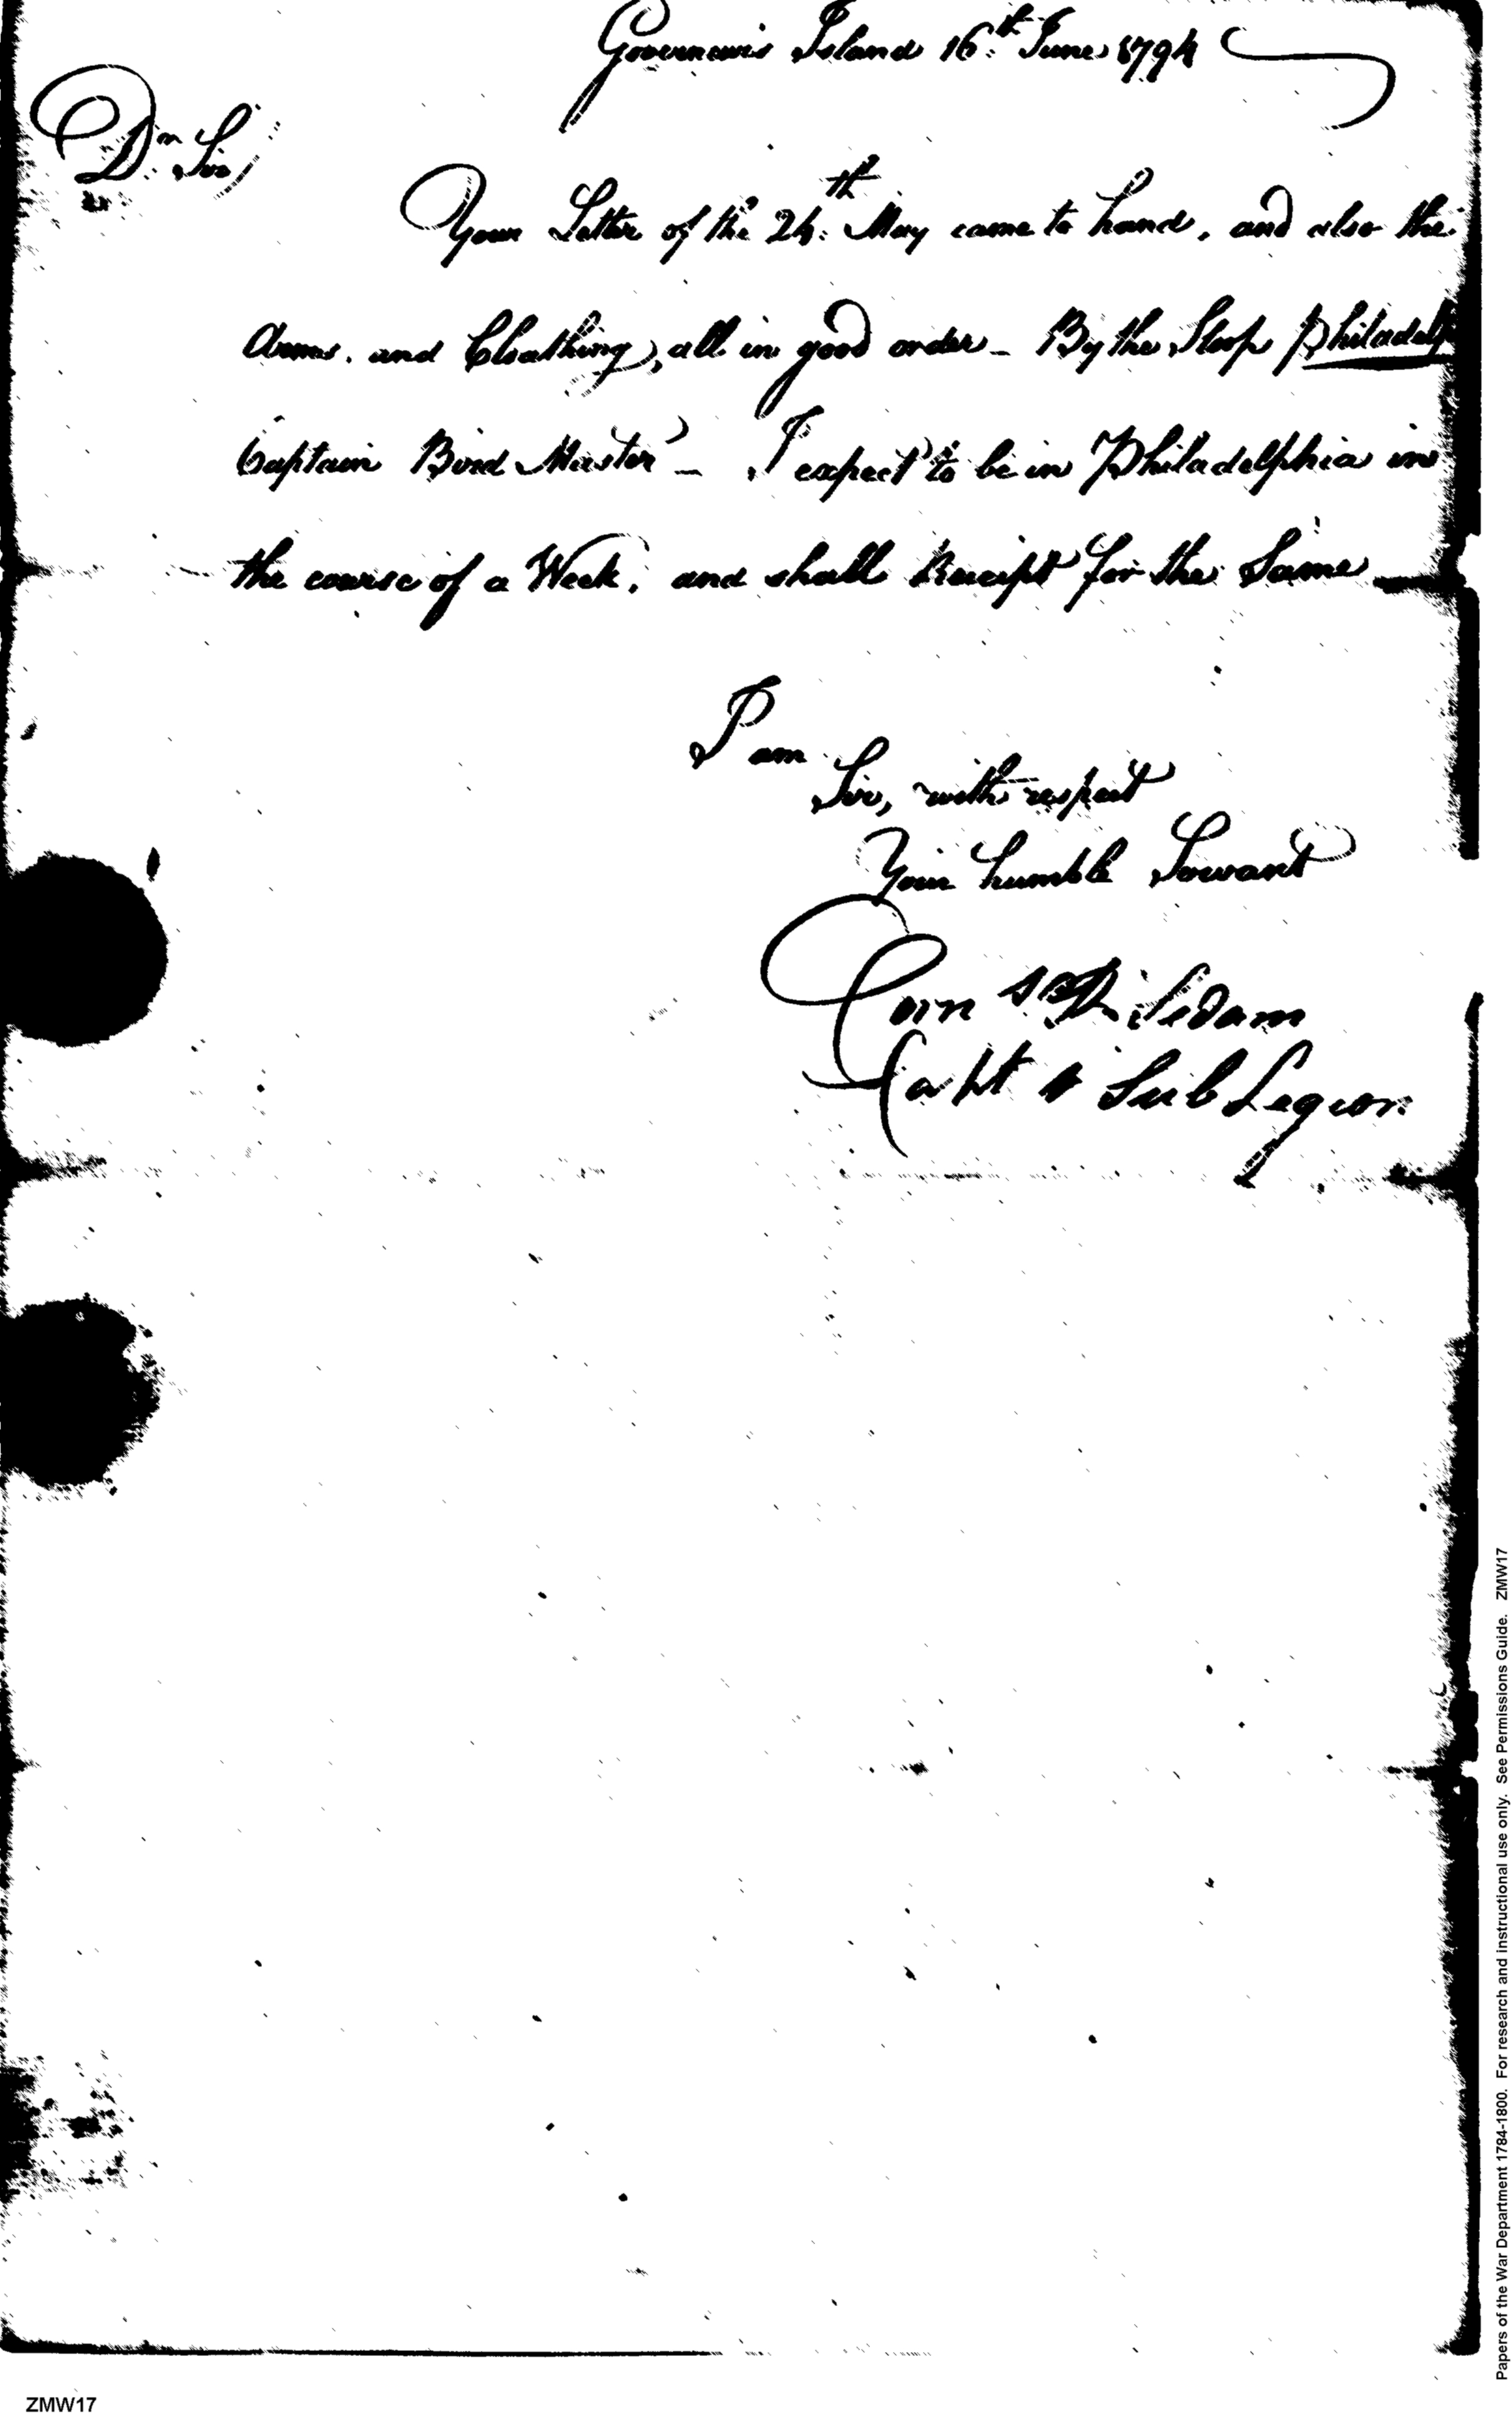 Governour's Island 16th June 1794
Dr. Sir,
Your Letter of the 24th May came to hand, and also the
Arms, and Cloathing, all in good order - By the Sloop Philadelp
Captain Bird Master - I expect to be in Philadelphia in
the course of a Week, and shall Receipt for the Same
I am
Sir, with respect
Your humble Servant
Corn Sedam
Capt Sub Legion
Papers of the War Department 1784-1800. For research and instructional use only. See Permissions Guide. ZMW17
ZMW17